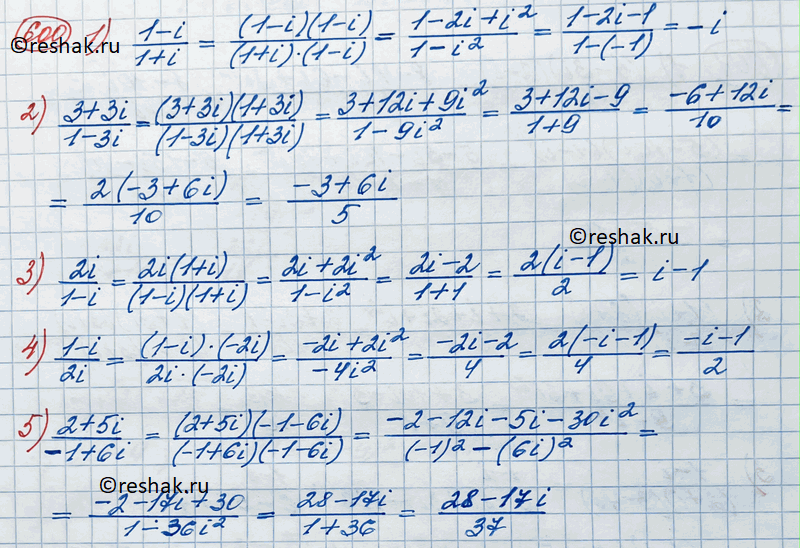 600 1) (1-i)/(1+i) = ((1-i)(1-i))/((1+i)·(1-i)) = (1-2i+i²)/(1-i²) = (1-2i-1)/(1-(-1)) = -i
©reshak.ru
2) (3+3i)/(1-3i) = ((3+3i)(1+3i))/((1-3i)(1+3i)) = (3+12i+9i²)/(1-9i²) = (3+12i-9)/(1+9) = (-6+12i)/10 =
= (2(-3+6i))/10 = (-3+6i)/5
©reshak.ru
3) 2i/(1-i) = (2i(1+i))/((1-i)(1+i)) = (2i+2i²)/(1-i²) = (2i-2)/(1+1) = (2(i-1))/2 = i-1
4) (1-i)/2i = ((1-i)·(-2i))/(2i·(-2i)) = (-2i+2i²)/(-4i²) = (-2i-2)/4 = (2(-i-1))/4 = (-i-1)/2
5) (2+5i)/(-1+6i) = ((2+5i)(-1-6i))/((-1+6i)(-1-6i)) = (-2-12i-5i-30i²)/((-1)²-(6i)²) =
©reshak.ru
= (-2-17i+30)/(1-36i²) = (28-17i)/(1+36) = (28-17i)/37